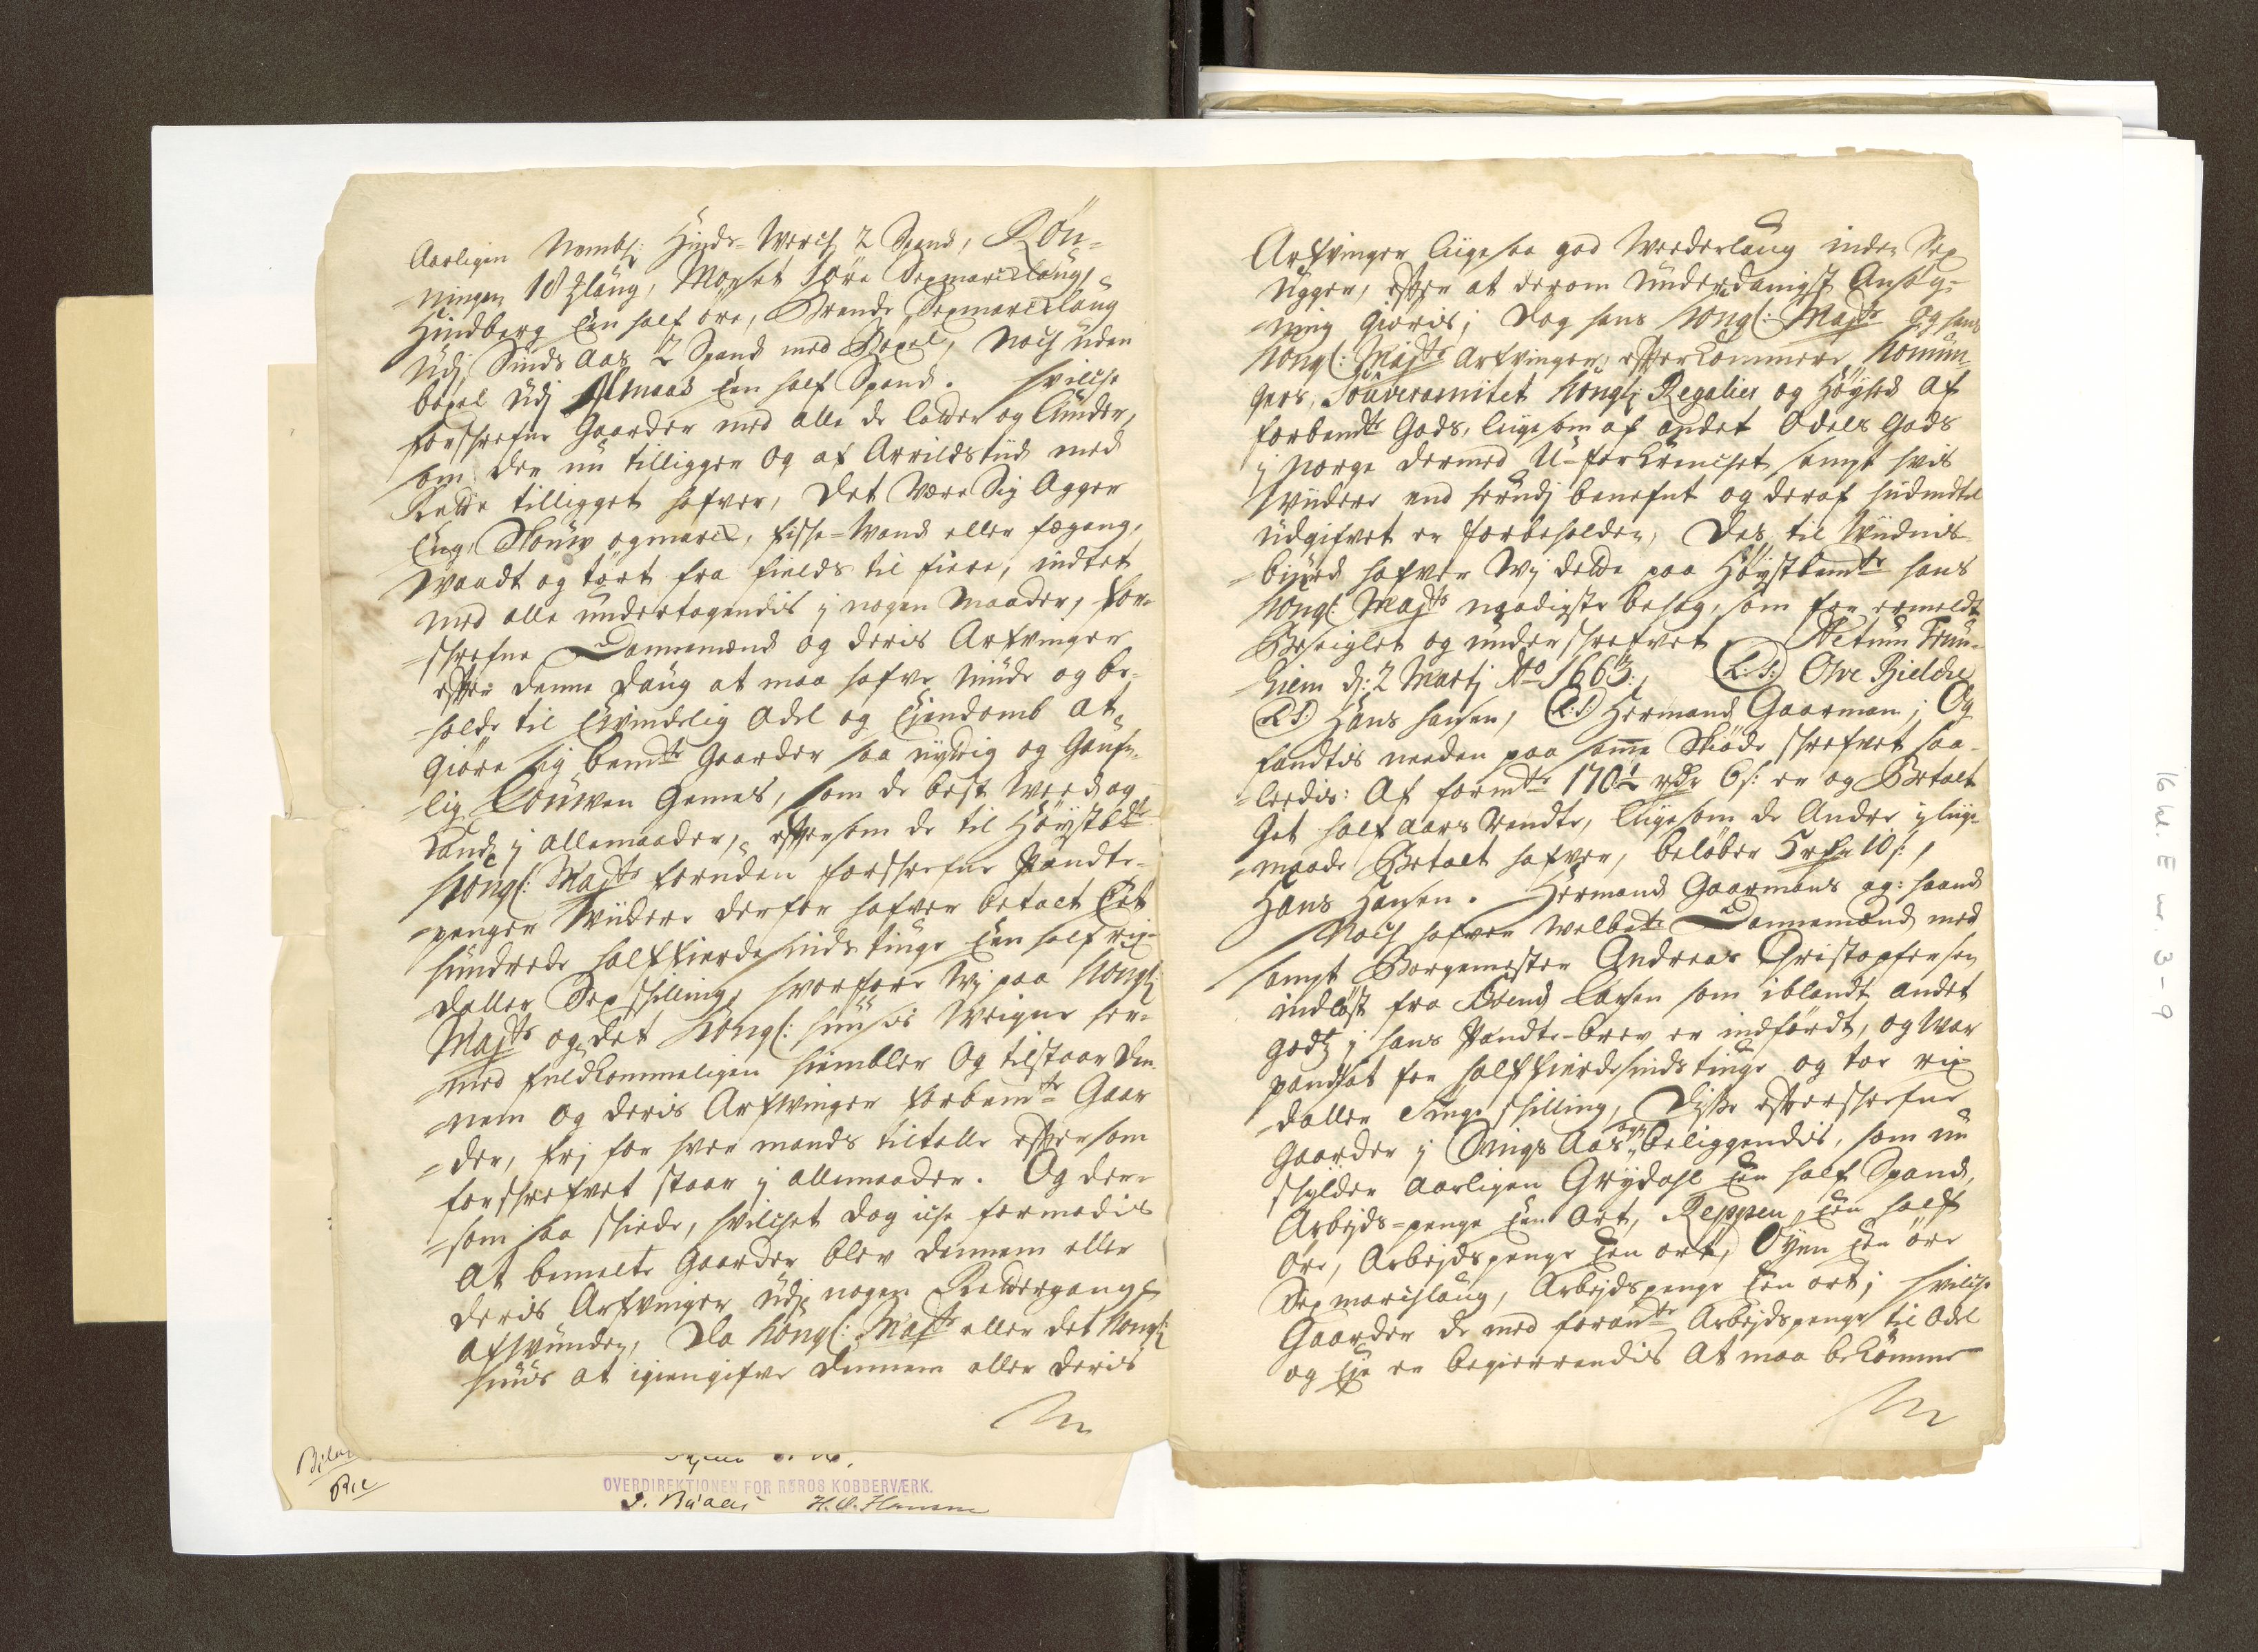 Aarligen Nembl: Hinds-Werch 2 Spand, Rön-
ningen 18 Hlaug, Morset 1öre Sexmarcklaug,
Hindberg Een half öre, Brende, Sexmarcklaug
Udj Sinds Aas 2 Spand med Böxel, Noch uden
böxel udj Almaas Een half Spand. Hvilche
forschrefne Gaarder med alle de lotter og lunder,
som der nu tilligger og af Arrildstiid med
Rette tilligget hafver, Det være sig Agger
Eng, Skouw ogmarck, fisse-Wand eller fægang,
Waadt og tört fra fields til fiere, indtet
med alle undertagendis j nogen Maader, for-
schrefne Dannemænd og deris Arfvinger
efter denne Daug at maa hafve Niude og be-
holde til Ewindelig Odel og Eiendomb At
Giöre sig bemte Gaarder saa nyttig og Gaufn-
lig Louwen Gemes, som de best Weed og
Kand j allemaader, eftersom de til Höystbte
Kongl: Majts foruden forschrefne Pandte-
penger Wiidere derfor hafver betalt Eet
hundrede halffierdesindstiuge Een half rix-
daller Sex schilling, hvorfore Wj paa Kongl:
Majts og det Kongl: huuses Weigne her-
med fuldkommeligen hiembler Og tilstaar den-
nem og deris Arfwinger forbemte Gaar
der, frj for hver mands tiltalle eftersom
forschrefvet staar j allemaader. Og der-
som saa skiede, hvilchet dog iche formodis
At bemelte Gaarder blev dennem eller
deris Arfvinger udj nogen Rettergang
afvunden, Da Kongl: Majts eller det Kongl:
huus at igiengifve dennem eller deris
Arfvinger liigesaa god Wederlaug inden Sex
Ugger, efter at derom underdanigst Ansög-
ning giöris; Dog hans Kongl: Majts og hans
Kongl: Majts Arfvinger, efterkommere, Konun-
gers, Souverainitet Kongl: Regalier og Höyhed af
forbemte Gods, liigesom af andet Odels Gods
j Norge dermed U-forkrenchet sampt hvis
Wiidere end herudj benefnt og deraf hidindtil
udgifvet er forbeholden, Des til Widnis-
biurd hafver Wj dette paa Höystbemte hans
Kongl: Majts naadigste behag, som før ermeldt
Beseiglet og underschrefvet Actum Trun-
hiem d: 2 Martj Ao 1663: (L:S:) Ove Bielche
(L:S:) Hans hansen, (L:S:) Hermand Gaarman; Og
fandtis neden paa samme Skiöde schrefvet saa-
leedis: Af formte 170½ rdr 6s: er og Betalt
Get half aars Rendte, liigesom de Andre j liige-
maade Betalt hafver, beløber 5 rdr 10 s: /
Hans Hansen. Hermand Gaarmans eg: haand
Noch hafver Welbte Dannemænd med
sampt Borgemester Andreas Christophersen
indløst fra Svend Larsen som iblandt andet
godtz j hans Pandte-brev er indfördt, og War
pandsat for halffierdesindstiuge og toe rix
daller Siuge schilling, Disse efterschrefne
Gaarder j Sings Aas beliggendis, som nu
schylder Aarligen Grydahl Een half Spand,
Arbejds-penge Een Ort, Reppen, Een half
öre, Arbejdspenge Een ort, Öyen Een öre
Sex marchlaug, Arbejdspenge Een ort; hvilche
Gaarder de med forante Arbejdspenge til Odel
og Eje er begierrendis At maa bekomme
OVERDIREKTIONEN FOR RØROS KOBBERVÆRK.
16 kl. E nr. 3-9